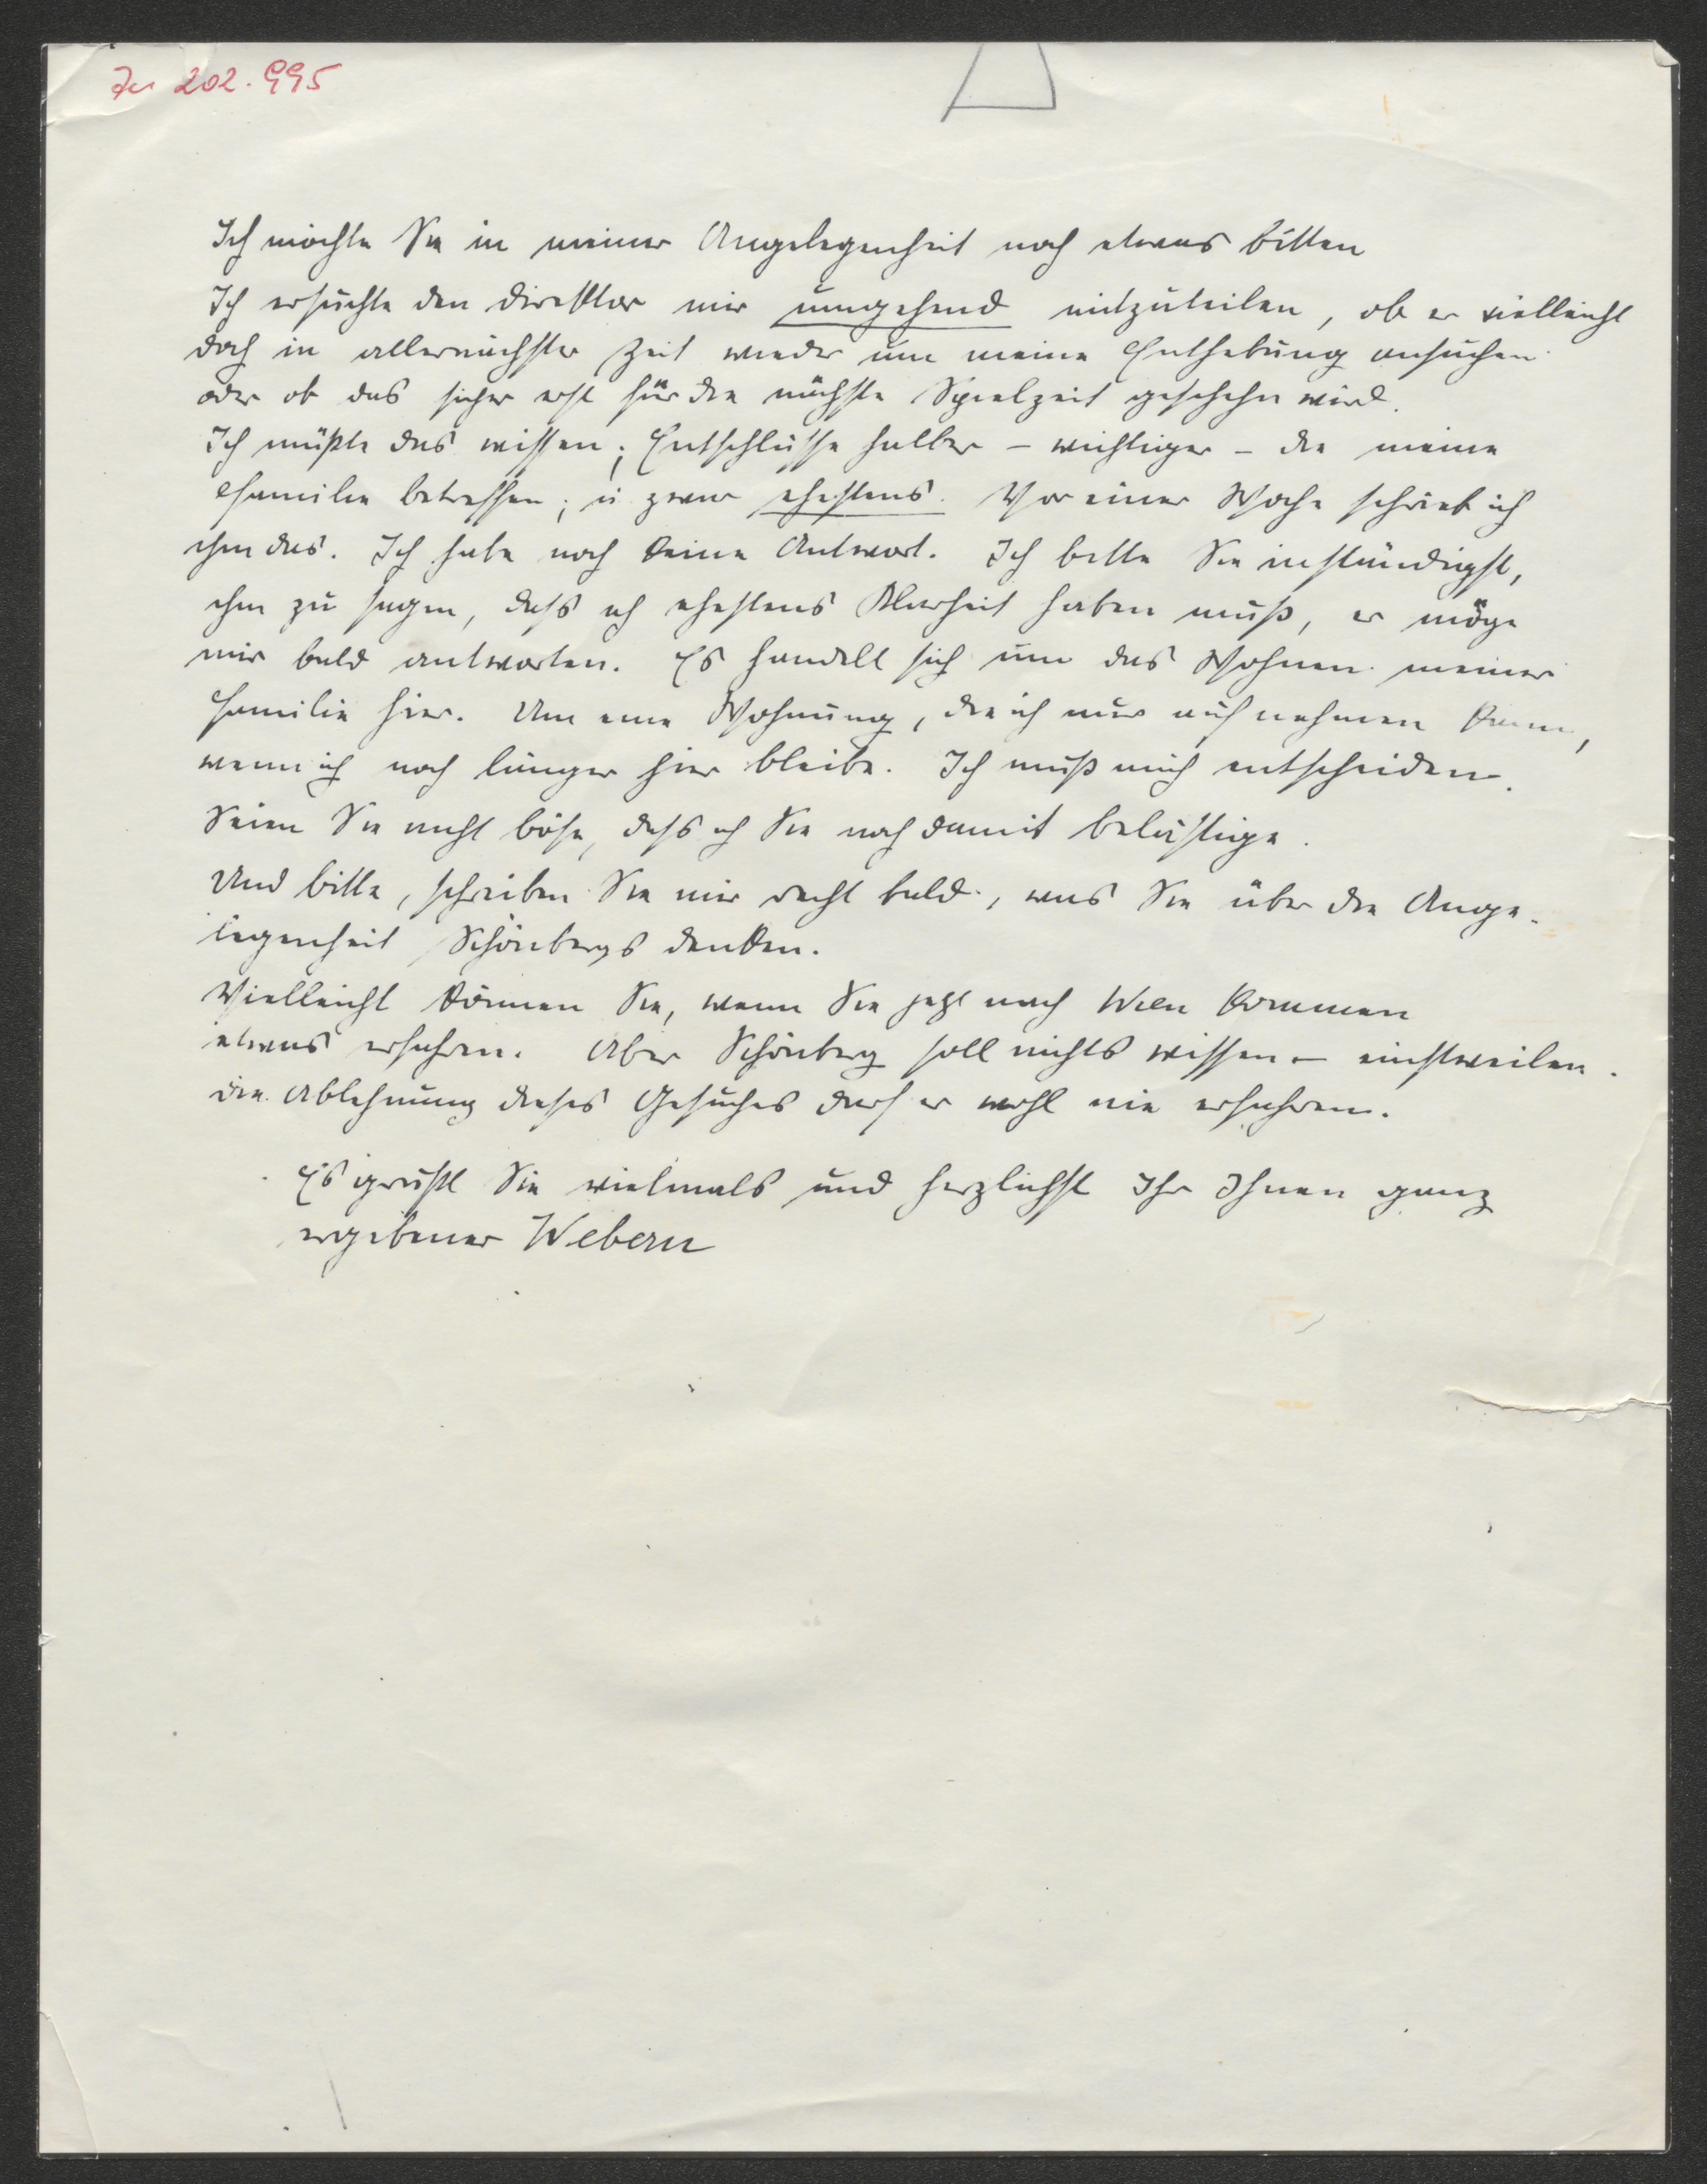 202.995
Ich möchte Sie in meiner Angelegenheit noch etwas bitten
Ich ersuchte den Direktor mir umgehend mitzuteilen, ob er vielleicht
doch in allernächster Zeit wieder um meine Enthebung ansuchen
oder ob das sicher erst für die nächste Spielzeit geschehn wird.
Ich müßte das wissen; Entschlüsse halber – wichtiger – die meine
Familie betreffen; u. zwar ehestens. Vor einer Woche schrieb ich
ihm das. Ich habe noch keine Antwort. Ich bitte Sie inständigst,
ihm zu sagen, dass ich ehestens Klarheit haben muß, er möge
mir bald antworten. Es handelt sich um das Wohnen meiner
Familie hier. Um eine Wohnung, die ich nur aufnehmen kann,
wenn ich noch länger hier bleibe. Ich muß mich entscheiden.
Seien Sie nicht böse, dass ich Sie noch damit belästige.
Und bitte, schreiben Sie mir recht bald, was Sie über die Ange-
legenheit Schönbergs denken.
Vielleicht können Sie, wenn Sie jetzt nach Wien kommen
etwas erfahren. Aber Schönberg soll nichts wissen – einstweilen.
die Ablehnung dieses Gesuches darf er wohl nie erfahren.
Es grüßt Sie vielmals und herzlichst Ihr Ihnen ganz
ergebener Webern